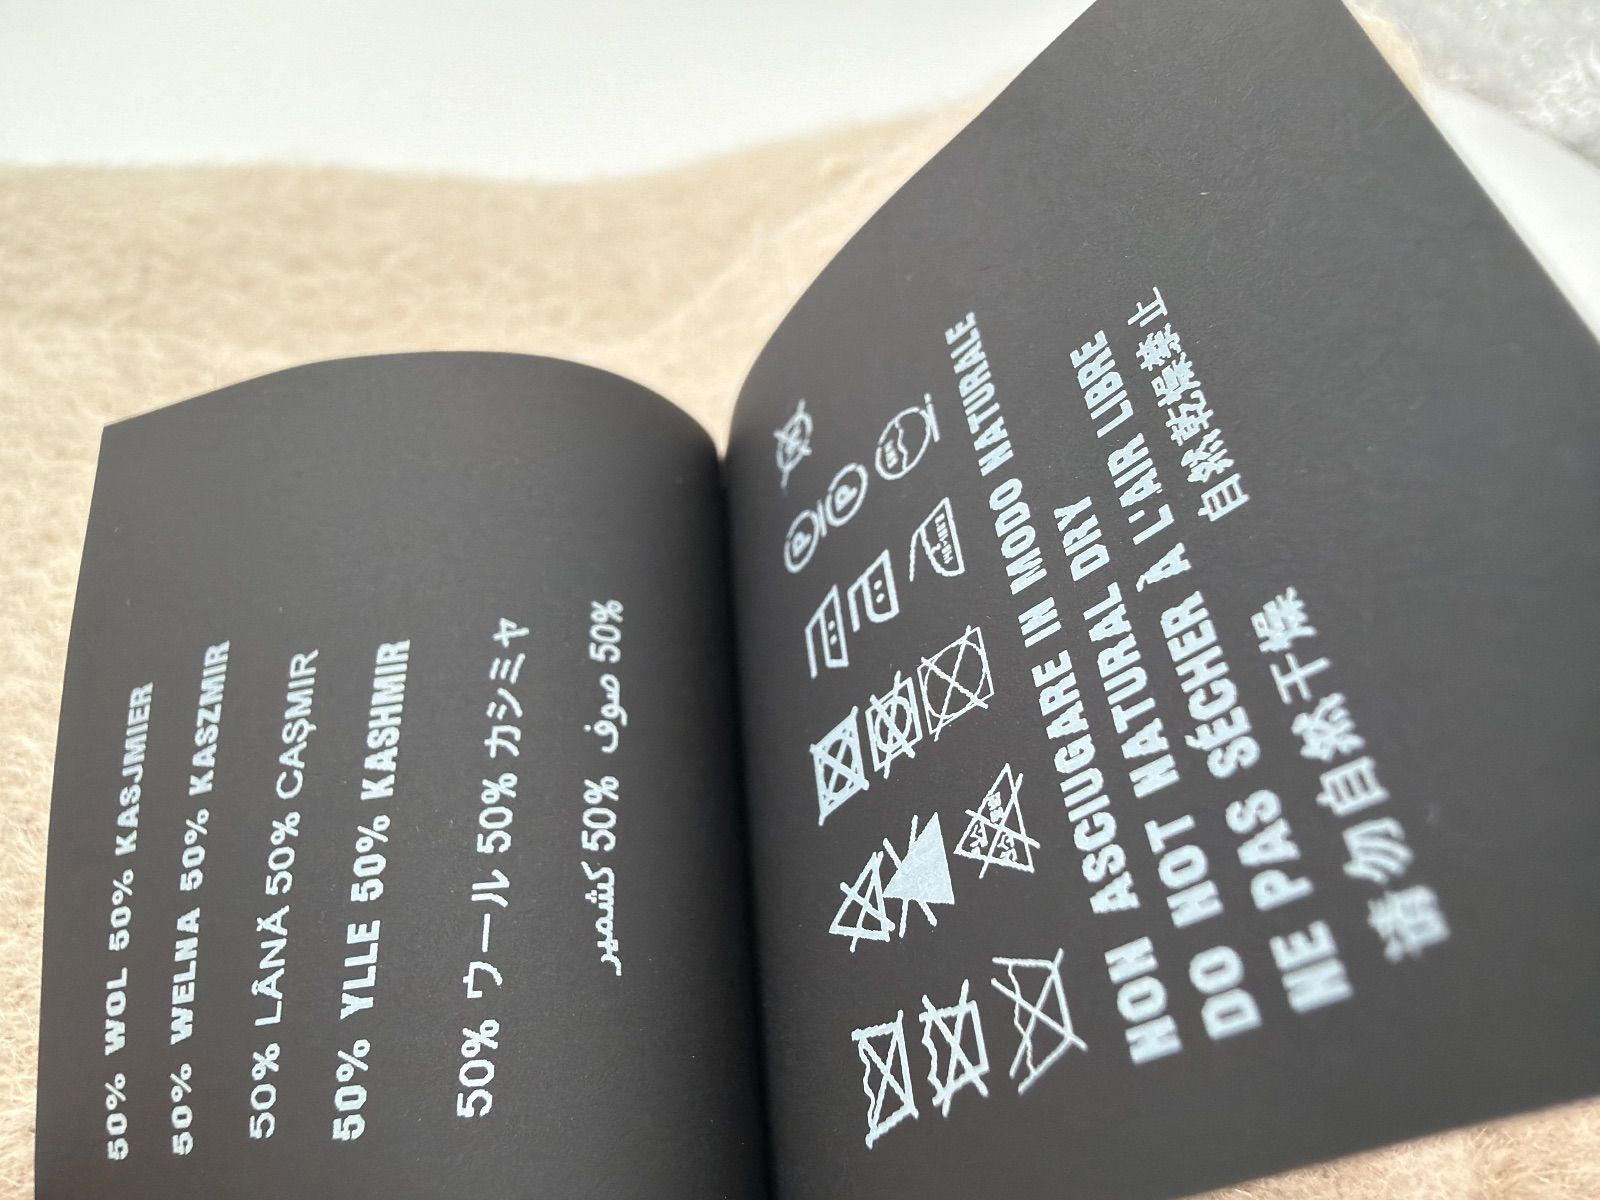 50% WOL 50% KASJMIER
50% WELNA 50% KASZMIR
50% LÂNĂ 50% CAŞMIR
50% YLLE 50% KASHMIR
50% ウール 50% カシミヤ
50% صوف 50% كشمير
P P
NON ASCIUGARE IN MODO NATURALE
DO NOT NATURAL DRY
NE PAS SÉCHER À L'AIR LIBRE
自然乾燥禁止
请勿自然干燥